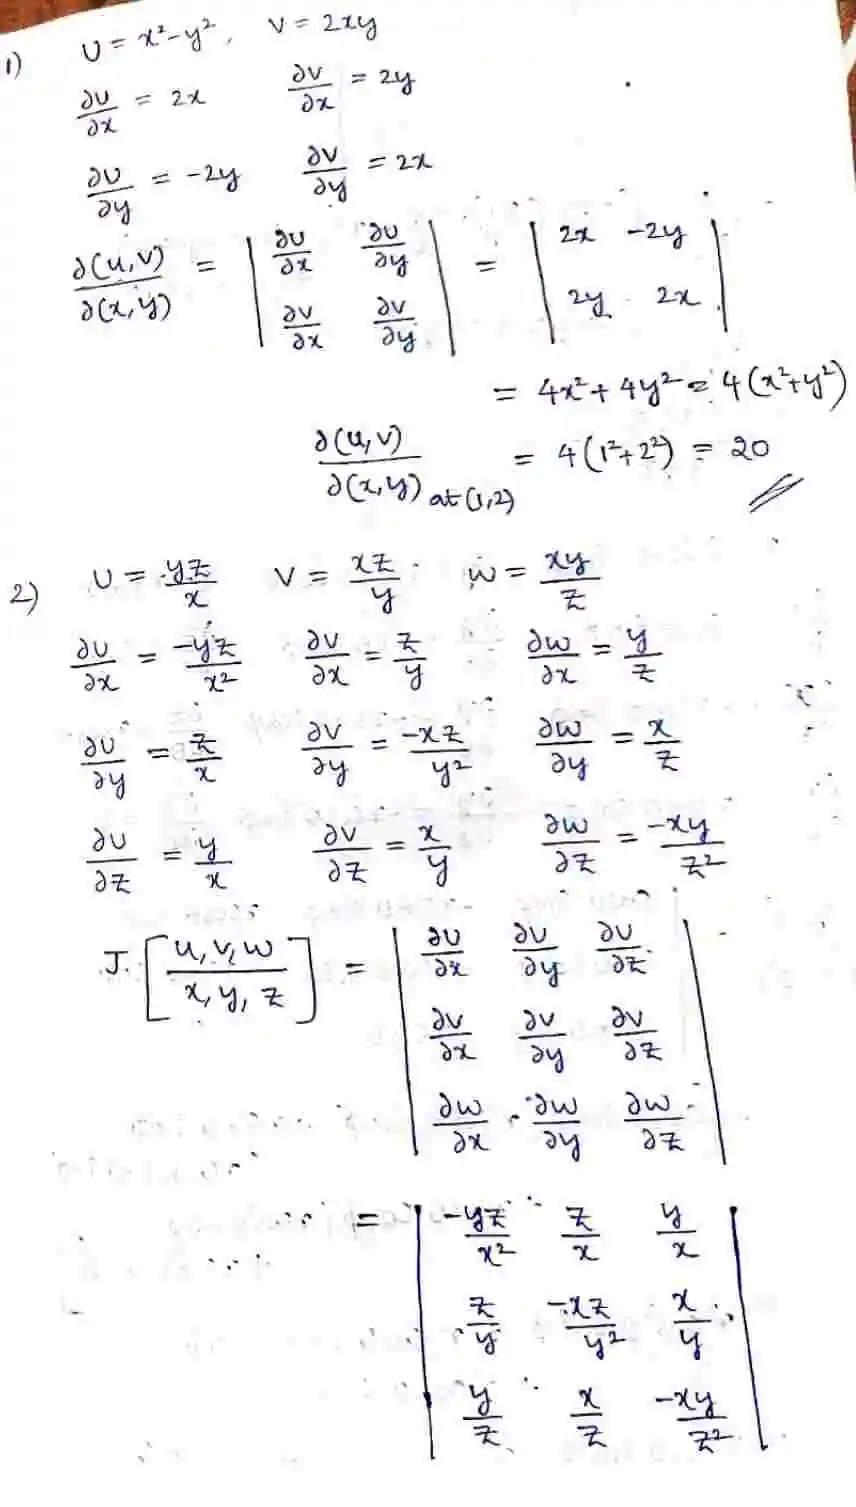 1) U = x²-y², V = 2xy
∂U/∂x = 2x ∂V/∂x = 2y
∂U/∂y = -2y ∂V/∂y = 2x
∂(u,v)/∂(x,y) = | ∂U/∂x ∂U/∂y | = | 2x -2y |
| ∂V/∂x ∂V/∂y | | 2y 2x |
= 4x²+4y² = 4(x²+y²)
∂(u,v)/∂(x,y) at (1,2) = 4(1²+2²) = 20
2) U = yz/x V = xz/y w = xy/z
∂U/∂x = -yz/x² ∂V/∂x = z/y ∂w/∂x = y/z
∂U/∂y = z/x ∂V/∂y = -xz/y² ∂w/∂y = x/z
∂U/∂z = y/x ∂V/∂z = x/y ∂w/∂z = -xy/z²
J [u,v,w / x,y,z] = | ∂U/∂x ∂U/∂y ∂U/∂z |
| ∂V/∂x ∂V/∂y ∂V/∂z |
| ∂w/∂x ∂w/∂y ∂w/∂z |
= | -yz/x² z/x y/x |
| z/y -xz/y² x/y |
| y/z x/z -xy/z² |